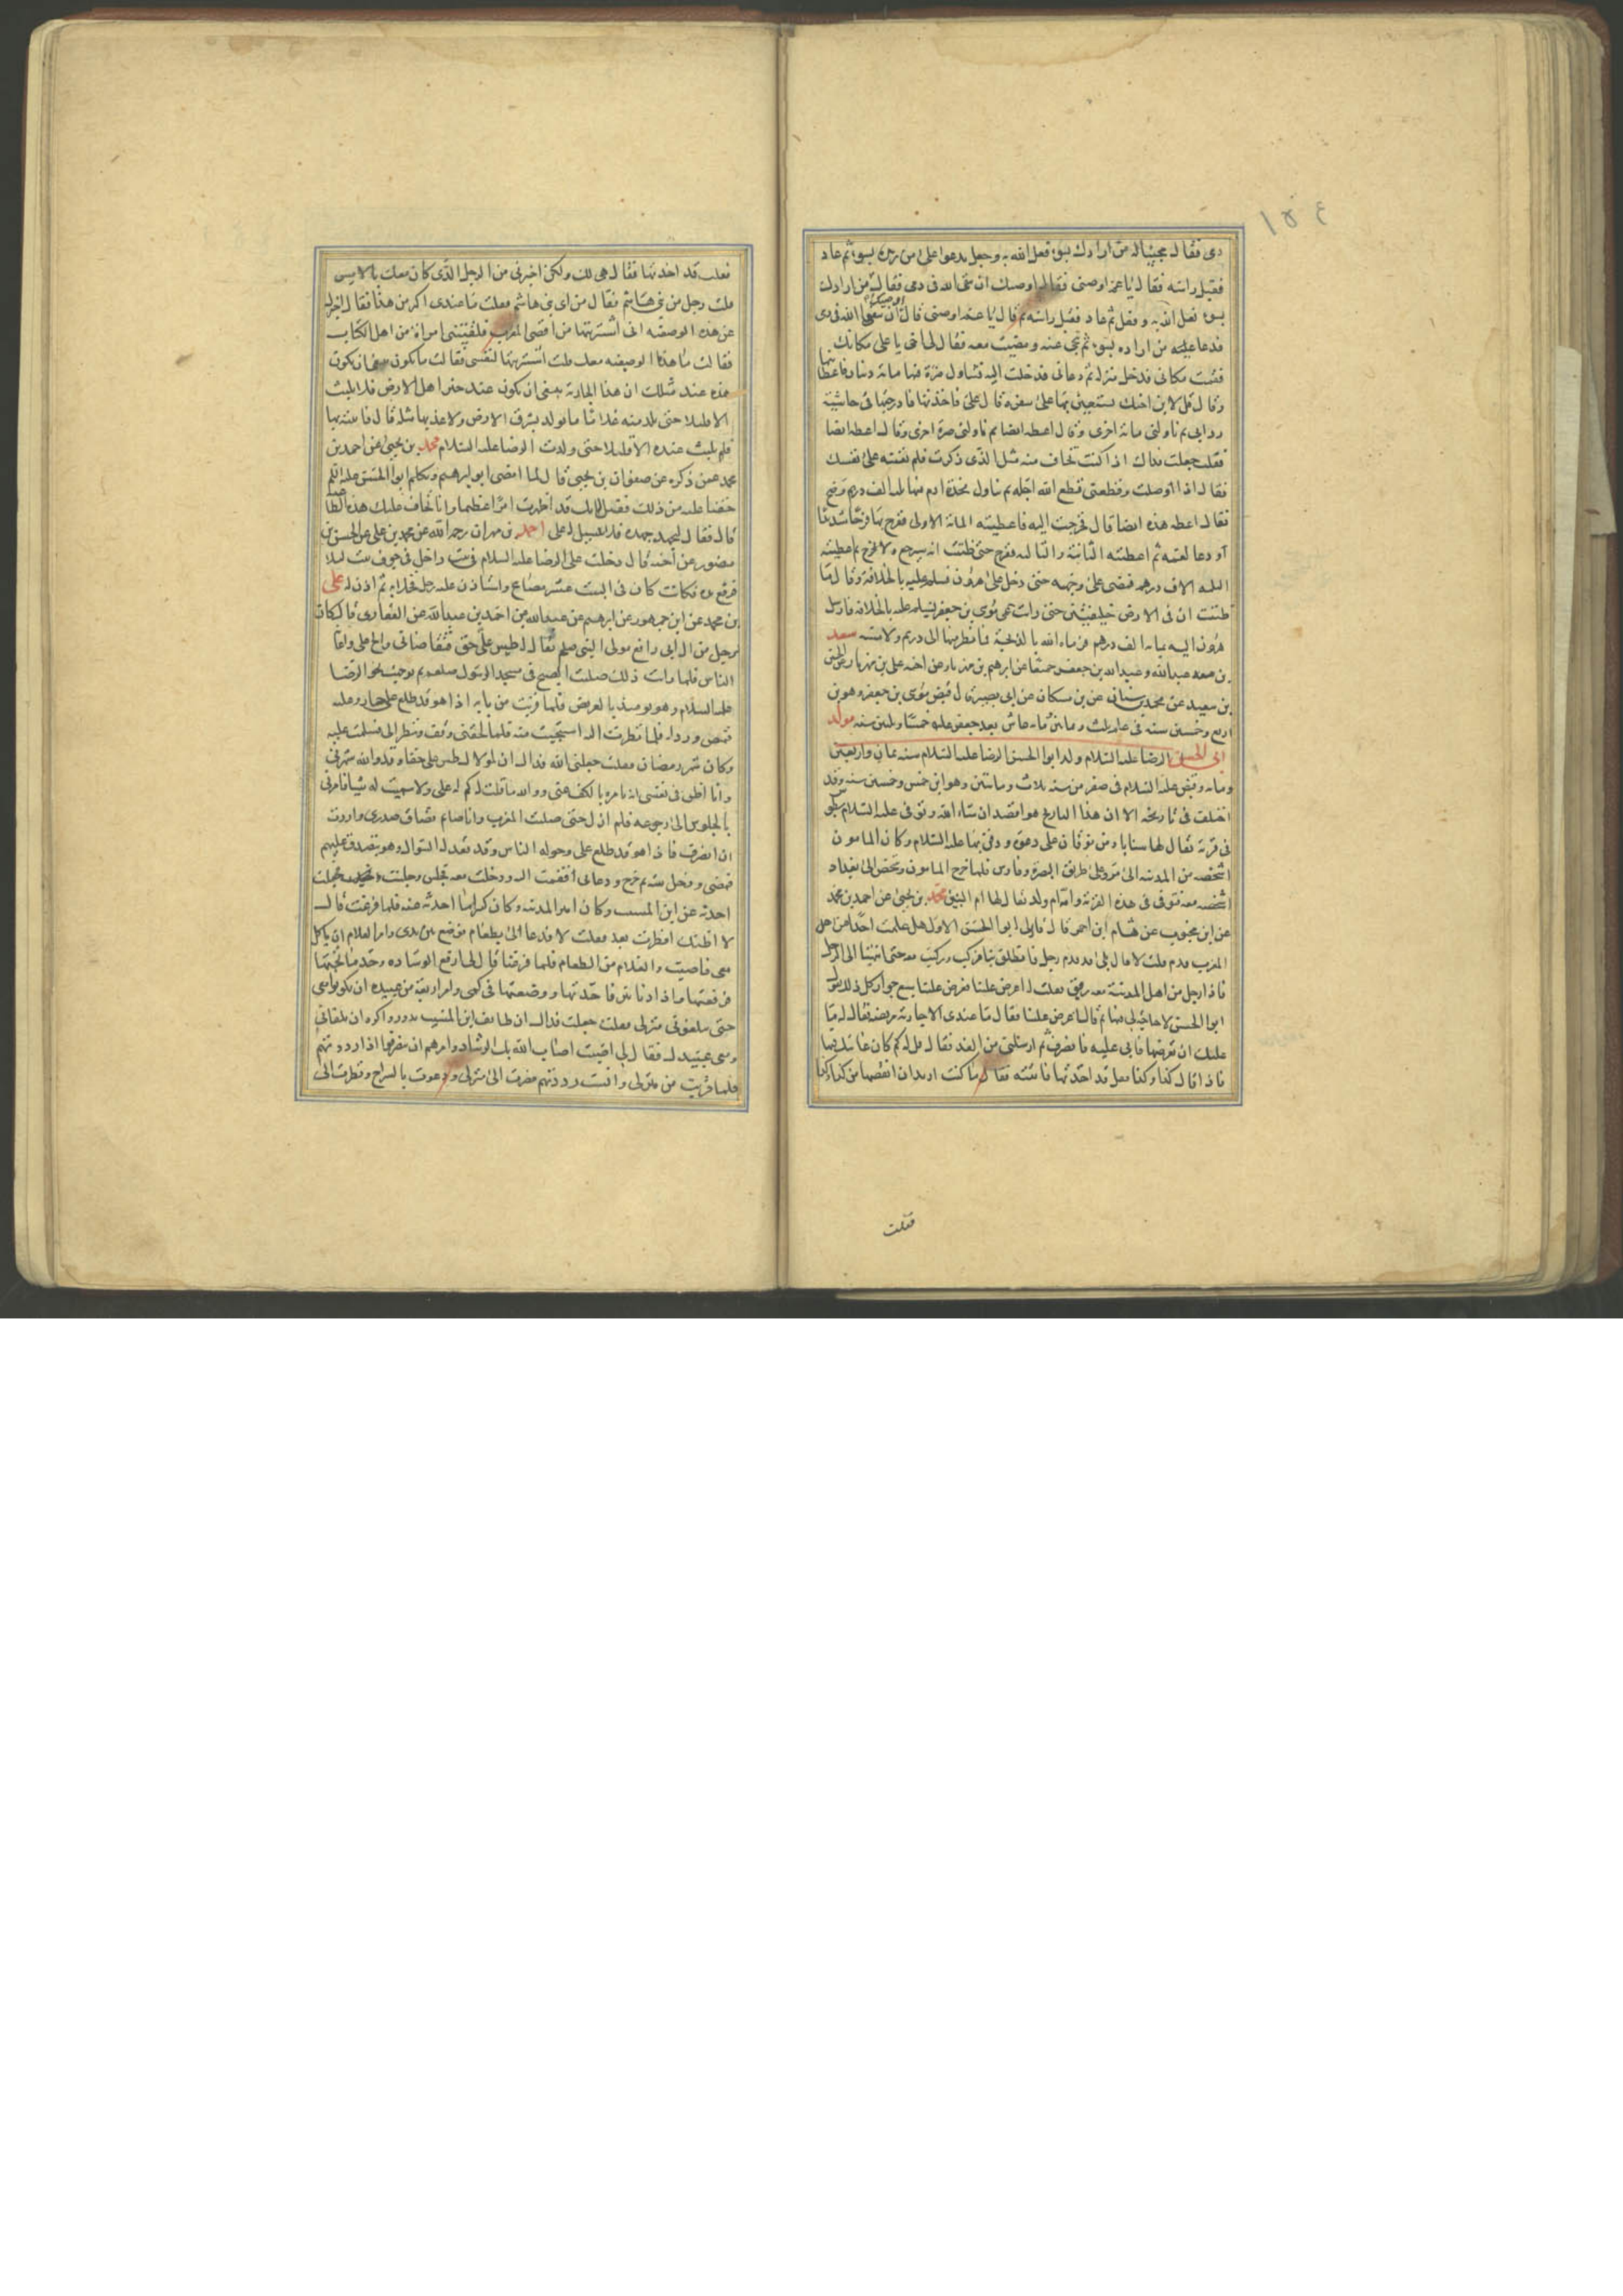 ١٥٤
دمى فقال مجيبا له من ارادك بسوء فعل الله به وجعل يدعو على من يريده بسوء ثم عاد
فقبل راسه فقال يا عم اوصنى فقال اوصيك ان تتقى الله فى دمى فقال من ارادك
بسوء فعل الله به وفعل ثم عاد فقبل راسه ثم قال يا عم اوصنى فقال اوصيك ان تتقى الله فى دمى
فدعا على من اراده بسوء ثم تنحى عنه ومضيت معه فقال لى اخى يا على مكانك
فقمت مكانى فدخل منزله ثم دعانى فدخلت اليه فتناول صرة فيها مائة دينار فاعطانيها
وقال قل لابن اخيك يستعين بها على سفره قال على فاخذتها فادرجتها فى حاشية
ردايى ثم ناولنى مائة اخرى وقال اعطه ايضا ثم ناولنى صرة اخرى وقال اعطه ايضا
فقلت جعلت فداك اذا كنت تخاف منه مثل الذى ذكرت فلم تعينه على نفسك
فقال اذا وصلته وقطعنى قطع الله اجله ثم تناول مخدة ادم فيها ثلثة الف درهم وضح
فقال اعطه هذه ايضا قال فخرجت اليه فاعطيته المائة الاولى ففرح بها فرحا شديدا
ودعا لعمه ثم اعطيته الثانية والثالثة ففرح حتى ظننت انه سيرجع ولا يخرج ثم اعطيته
الثلثة الاف درهم فمضى على وجهه حتى دخل على هرون فسلم عليه بالخلافة وقال ما
ظننت ان فى الارض خليفتين حتى رايت عمى موسى بن جعفر يسلم عليه بالخلافة فارسل
هرون اليه بمائة الف درهم فرماه الله بالذبحة فما نظر منها الى درهم ولا مسه سعد
بن عبد الله وعبد الله بن جعفر جميعا عن ابرهيم بن مهزيار عن اخيه على بن مهزيار عن الحسين
بن سعيد عن محمد بن سنان عن بن مسكان عن ابى بصير قال قبض موسى بن جعفر وهو بن
اربع وخمسين سنة فى عام ثلث وثمانين ومائة عاش بعد جعفر عليه خمسا وثلثين سنه مولد
ابى الحسن الرضا عليه السلام ولد ابو الحسن الرضا عليه السلام سنه ثمان واربعين
ومائه وقبض عليه السلام فى صفر من سنه ثلاث ومائتين وهو ابن خمس وخمسين سنه وقد
اختلف فى تاريخه الا ان هذا التاريخ هو اقصد ان شاء الله وتوفى عليه السلام بطوس
فى قرية يقال لها سناباد من نوقان على دعوة ودفن بها عليه السلام وكان المامون
اشخصه من المدينه الى مرو على طريق البصرة وفارس فلما خرج المامون وشخص الى بغداد
اشخصه معه فتوفى فى هذه القرية وامه ام ولد يقال لها ام البنين محمد بن يحيى عن احمد بن محمد
عن ابن محبوب عن هشام ابن احمر قال قال لى ابو الحسن الاول هل علمت احدا من اهل
المغرب قدم قلت لا قال بلى قد قدم رجل فانطلق بنا فركب وركبت معه حتى انتهينا الى الرجل
فاذا رجل من اهل المدينة معه رقيق فقلت له اعرض علينا فعرض علينا سبع جوار كل ذلك يقول
ابو الحسن لا حاجة لى فيها ثم قال اعرض علينا فقال ما عندى الا جارية مريضه فقال له ما
عليك ان تعرضها فابى عليه فانصرف ثم ارسلنى من الغد فقال قل له كم كان غايتك فيها
فاذا قال كذا وكذا فقل قد اخذتها فاتيته فقال ما كنت اريد ان انقصها من كذا وكذا
فقلت
فقلت قد اخذتها فقال هى لك ولكن اخبرنى من الرجل الذى كان معك بالامس
قلت رجل من بنى هاشم فقال من اى بنى هاشم فقلت ما عندى اكثر من هذا فقال اخبرك
عن هذه الوصيفه انى اشتريتها من اقصى المغرب فلقيتنى امراة من اهل الكتاب
فقالت ما هذه الوصيفه معك قلت اشتريتها لنفسى فقالت ما يكون ينبغى ان يكون
هذه عند مثلك ان هذا الجارية ينبغى ان يكون عند خير اهل الارض فلا تلبث
الا قليلا حتى تلد منه غلاما ما يولد بشرق الارض ولا غربها مثله قال فاتيته بها
فلم تلبث عنده الا قليلا حتى ولدت الرضا عليه السلام محمد بن يحيى عن احمد بن
محمد عمن ذكره عن صفوان بن يحيى قال لما مضى ابو ابرهيم وتكلم ابو الحسن عليه السلم
خفنا عليه من ذلك فقيل له انك قد اظهرت امرا عظيما وانا نخاف عليك هذه الطاغيه
قال فقال ليجهد جهده فلا سبيل له على احمد بن مهران رحمه الله عن محمد بن على عن الحسن بن
منصور عن اخيه قال دخلت على الرضا عليه السلام فى بيت داخل فى جوف بيت ليلا
فرفع يده فكانت كان فى البيت عشر مصابيح واستاذن عليه رجل فخلا يده ثم اذن له على
بن محمد عن ابن جمهور عن ابرهيم عن عبد الله عن احمد بن عبد الله عن الغفارى قال كان
لرجل من ال ابى رافع مولى النبى صلعم يقال له طيس على حق فتقاضانى والح على واعانه
الناس فلما رايت ذلك صليت الصبح فى مسجد الرسول صلعم ثم توجهت نحو الرضا
عليه السلام وهو يومئذ بالعريض فلما قربت من بابه اذا هو قد طلع على حمار وعليه
قميص وردا فلما نظرت اليه استحييت منه فلما لحقنى وقف ونظر الى فسلمت عليه
وكان شهر رمضان فقلت جعلنى الله فداك ان لمولاك طيس على حقا وقد والله شهرنى
وانا اظن فى نفسى انه يامره بالكف عنى ووالله ما قلت له كم له على ولا سميت له شيئا فامرنى
بالجلوس الى رجوعه فلم ازل حتى صليت المغرب وانا صايم فضاق صدرى واردت
ان انصرف فاذا هو قد طلع على وحوله الناس وقد قعد له السوال وهو يتصدق عليهم
فمضى ودخل بيته ثم خرج ودعانى فقمت اليه ودخلت معه فجلس وجلست فجعلت
احدثه عن ابن المسيب وكان امير المدينه وكان كثيرا ما احدثه عنه فلما فرغت قال
لا اظنك افطرت بعد فقلت لا فدعا لى بطعام فوضع بين يدى وامر الغلام ان ياكل
معى فاصبت والغلام من الطعام فلما فرغنا قال لى ارفع الوساده وخذ ما تحتها
فرفعتها واذا دنانير فاخذتها ووضعتها فى كمى وامر اربعة من عبيده ان يكونوا معى
حتى يبلغونى منزلى فقلت جعلت فداك ان طايف ابن المسيب يدور واكره ان يلقانى
ومعى عبيدك فقال لى اصبت اصاب الله بك الرشاد وامرهم ان ينصرفوا اذا رددتهم
فلما قربت من منزلى وانست رددتهم فصرت الى منزلى ودعوت بالسراج ونظرت الى